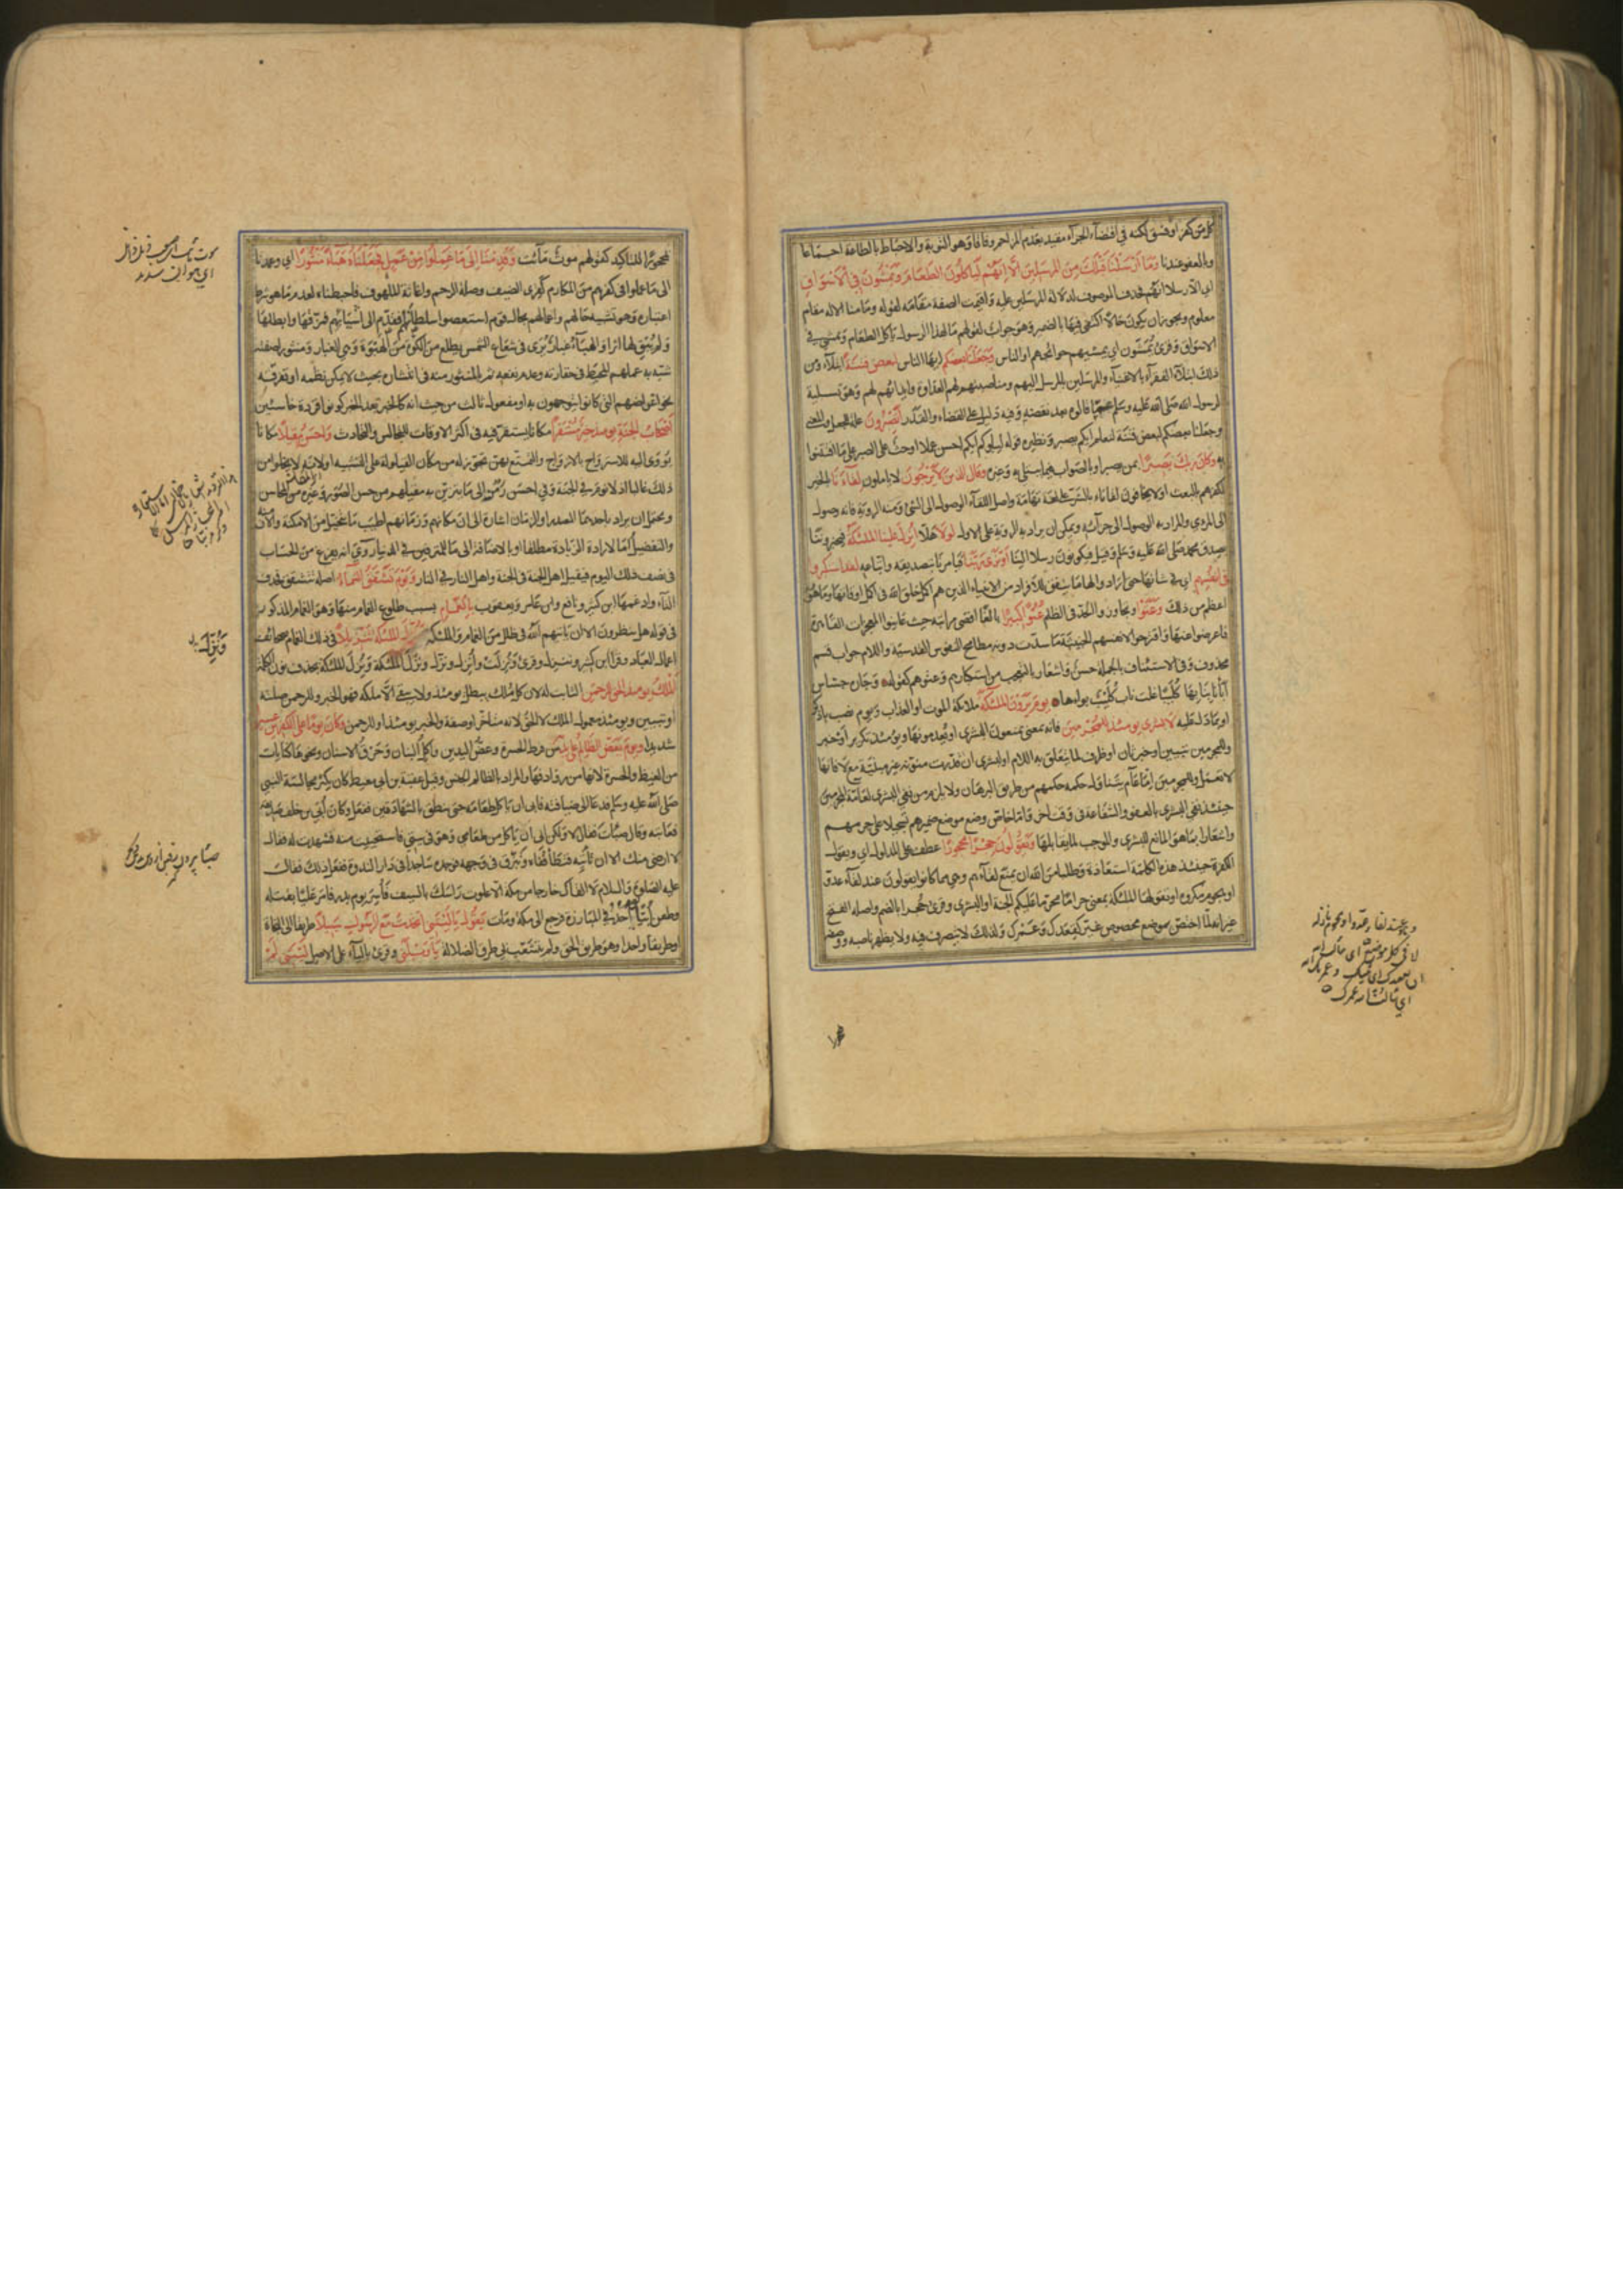 كل من كفر او فسق لكنه في اقتضاء الجزاء مقيد بعدم المزاحم وفاقا وهو التوبة والاحباط بالطاعة اجماعا
وبالعفو عندنا وَمَا اَرْسَلْنَا قَبْلَكَ مِنَ المُرْسَلِينَ اِلَّا اِنَّهُمْ لَيَاْكُلُونَ الطَّعَامَ وَيَمْشُونَ فِي الْاَسْوَاقِ
اي الا رسلا انهم فحذف الموصوف لدلالة المرسلين عليه واقيمت الصفة مقامه لقوله وما منا الا له مقام
معلوم ويجوز ان يكون حالا اكتفى فيها بالضمير وهو جواب لقولهم ما لهذا الرسول ياكل الطعام ويمشي في
الاسواق وقرئ يُمَشَّون اي يمشيهم حوائجهم او الناس وَجَعَلْنَا بَعْضَكُم ايها الناس لِبَعْضٍ فِتْنَةً ابتلاء ومن
ذلك ابتلاء الفقراء بالاغنياء والمرسلين بالمرسل اليهم ومناصبتهم لهم العداوة وايذائهم لهم وهو تسلية
لرسول الله صلى الله عليه وسلم على ما قالوه بعد نقضه وفيه دليل على القضاء والقدر اَتَصْبِرُونَ علة للجعل والمعنى
وجعلنا بعضكم لبعض فتنة لنعلم ايكم يصبر ونظيره قوله ليبلوكم ايكم احسن عملا او حث على الصبر على ما افتتنوا
به وَكَانَ رَبُّكَ بَصِيرًا بمن يصبر او بالصواب فيما يبتلي به وغيره وَقَالَ الَّذِينَ لَا يَرْجُونَ لا ياملون لِقَاءَنَا بالخير
لكفرهم بالبعث او لا يخافون لقاءنا بالشر على لغة تهامة واصل اللقاء الوصول الى الشئ ومنه الرؤية فانه وصول
الى المرئي والمراد به الوصول الى جزائه ويمكن ان يراد به الرؤية على الاول لَوْلَا هلا اُنْزِلَ عَلَيْنَا المَلٰئِكَةُ فيخبروننا
بصدق محمد صلى الله عليه وسلم وقيل فيكونون رسلا الينا اَوْ نَرَى رَبَّنَا فيامرنا بتصديقه واتباعه لَقَدِ اسْتَكْبَرُوا
فِي اَنْفُسِهِمْ اي في شانها حتى ارادوا لها ما يتفق للافراد من الانبياء الذين هم اكمل خلق الله في اكمل اوقاتها وما هو
اعظم من ذلك وَعَتَوْا وتجاوزوا الحد في الظلم عُتُوًّا كَبِيرًا بالغا اقصى مراتبه حيث عاينوا المعجزات القاهرة
فاعرضوا عنها واقترحوا لانفسهم الخبيثة ما سدت دونه مطامح النفوس القدسية واللام جواب قسم
محذوف وفي الاستئناف بالجملة حسن واشعار بالتعجب من استكبارهم وعتوهم كقوله وجارة جساس
اَبَأْنا بِنَابِهَا كُلَيْبًا غَلَت ناب كُلَيْبٌ بواءها يَوْمَ يَرَوْنَ المَلٰئِكَةَ ملائكة الموت او العذاب ويوم نصب باذكر
او بما دل عليه لَا بُشْرٰى يَوْمَئِذٍ لِلْمُجْرِمِينَ فانه بمعنى يمنعون البشرى او يُعدمونها ويومئذ تكرير او خبر
وللمجرمين تبيين او خبر ثان او ظرف لما يتعلق به اللام او لبشرى ان قدرت منونة غير مبنية مع لا فانها
لا تعمل وللمجرمين اما عام يتناول حكمه حكمهم من طريق البرهان ولا يلزم من نفي البشرى لعامة المجرمين
حينئذ نفي البشرى بالعفو والشفاعة في وقت اخر واما خاص وضع موضع ضميرهم تسجيلا على جرمهم
واشعارا بما هو المانع للبشرى والموجب لما يقابلها وَيَقُولُونَ حِجْرًا مَحْجُورًا عطف على المدلول اي ويقول
الكفرة حينئذ هذه الكلمة استعاذة وطلبا من الله ان يمنع لقاءهم وهي مما كانوا يقولون عند لقاء عدو
او هجوم مكروه او تقولها الملئكة بمعنى حراما محرما عليكم الجنة او البشرى وقرئ حُجرا بالضم واصله الفتح
غير انه لما اختص بموضع مخصوص غير كقعدك وعمرك ولذلك لا يتصرف فيه ولا يظهر ناصبه ووصفه
محجورًا للتاكيد كقولهم موت مائت وَقَدِمْنَا اِلٰى مَا عَمِلُوا مِنْ عَمَلٍ فَجَعَلْنَاهُ هَبَاءً مَنْثُورًا اي وعمدنا
الى ما عملوا في كفرهم من المكارم كقرى الضيف وصلة الرحم واغاثة الملهوف فاحبطناه لعدم ما هو شرط
اعتباره وهو تشبيه حالهم واعمالهم بحال قوم استعصوا سلطانهم فقدم الى اشيائهم فمزقها وابطلها
ولم يُبق لها اثرا والهباء غبار يُرى في شعاع الشمس يطلع من الكوة من الهبوة وهي الغبار ومنثورا صفته
شبه به عملهم المحبط في حقارته وعدم نفعه ثم بالمنثور منه في انتشاره بحيث لا يمكن نظمه او تفرقه
نحو اغراضهم التي كانوا يتوجهون به او مفعول ثالث من حيث انه كالخبر بعد الخبر كونوا قردة خاسئين
اَصْحَابُ الجَنَّةِ يَوْمَئِذٍ خَيْرٌ مُسْتَقَرًّا مكانا يستقر فيه في اكثر الاوقات للتجالس والتحادث وَاَحْسَنُ مَقِيلًا مكانا
يؤوى اليه للاسترواح بالازواج والتمتع بهن تجوز له من مكان القيلولة على التشبيه او لانه لا يخلوا من
ذلك غالبا اذ لا نوم في الجنة وفي احسن رمز الى ما يتزين به مقيلهم من حسن الصور وغيره من التحاسين
ويحتمل ان يراد باحدهما المصدر او الزمان اشارة الى ان مكانهم وزمانهم اطيب ما يتخيل من الامكنة والازمنة
والتفضيل اما لارادة الزيادة مطلقا او بالاضافة الى ما للمترفين في الدنيا روي انه يفرغ من الحساب
في نصف ذلك اليوم فيقيل اهل الجنة في الجنة واهل النار في النار وَيَوْمَ تَشَقَّقُ السَّمَاءُ اصله تتشقق فحذف
التاء وادغمها ابن كثير ونافع وابن عامر ويعقوب بِالْغَمَامِ بسبب طلوع الغمام منها وهو الغمام المذكور
في قوله هل ينظرون الا ان ياتيهم الله في ظلل من الغمام والملئكة وَنُزِّلَ المَلٰئِكَةُ تَنْزِيلًا في ذلك الغمام بصحائف
اعمال العباد وقرا ابن كثير وننزل وقرئ ونزلت واُنزل ونَزَل ونزّل الملئكة ونُزّل الملئكة بحذف نون الكلمة
اَلْمُلْكُ يَوْمَئِذٍ الحَقُّ لِلرَّحْمٰنِ الثابت له لان كل ملك يبطل يومئذ ولا يبقى الا ملكه فهو الخبر وللرحمن صلته
او تبيين ويومئذ معمول الملك لا الحق لانه متاخر او صفة والخبر يومئذ او للرحمن وَكَانَ يَوْمًا عَلَى الكٰفِرِينَ عَسِيرًا
شديدا وَيَوْمَ يَعَضُّ الظَّالِمُ عَلٰى يَدَيْهِ من فرط الحسرة وعض اليدين واكل البنان وحرق الاسنان ونحوها كنايات
من الغيظ والحسرة لانها من روادفها والمراد بالظالم الجنس وقيل عقبة بن ابي معيط كان يكثر مجالسة النبي
صلى الله عليه وسلم فدعاه الى ضيافته فابى ان ياكل طعامه حتى ينطق بالشهادتين ففعل وكان اُبي بن خلف صديقه
فعاتبه وقال صبأت فقال لا ولكن ابى ان ياكل من طعامي وهو في بيتي فاستحييت منه فشهدت له فقال
لا ارضى منك الا ان تاتيه فتطأ قفاه وتبزق في وجهه فوجده ساجدا في دار الندوة ففعل ذلك فقال
عليه الصلوة والسلام لا القاك خارجا من مكة الا علوت راسك بالسيف فاُسر يوم بدر فامر عليا بقتله
وطعن اُبيا باُحُد في المبارزة فرجع الى مكة ومات يَقُولُ يَالَيْتَنِي اتَّخَذْتُ مَعَ الرَّسُولِ سَبِيلًا طريقا الى النجاة
او طريقا واحدا وهو طريق الحق ولم يتشعب بي طرق الضلالة يَاوَيْلَتٰى وقرئ بالياء على الاصل لَيْتَنِي لَمْ
وَنُنْزِلُ